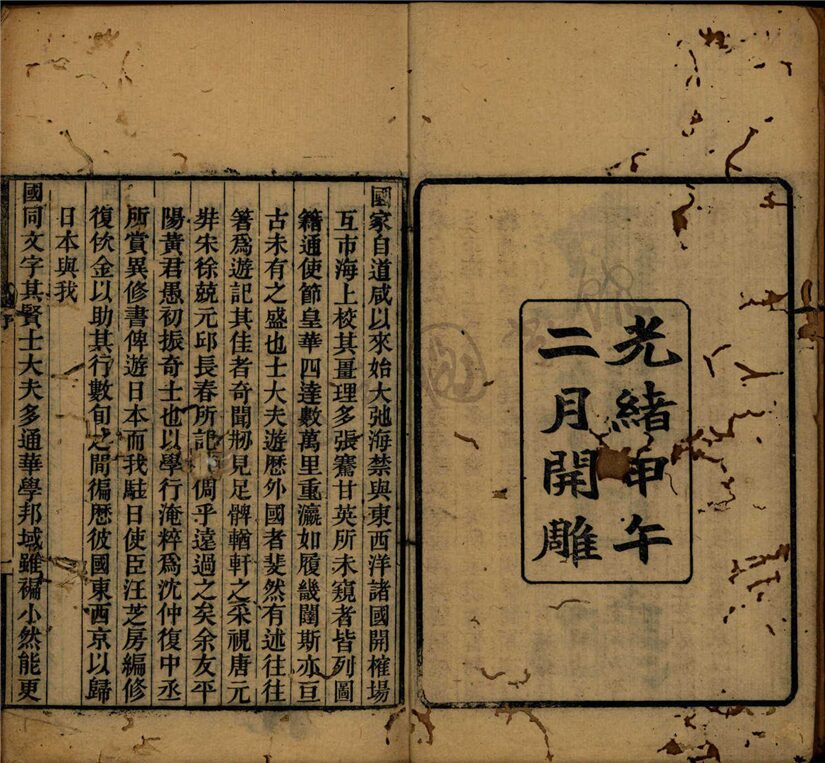 光緒甲午
二月開雕
國家自道咸以來始大弛海禁與東西洋諸國開榷場
互市海上校其畺理多張騫甘英所未窺者皆列圖
籍通使節皇華四達數萬里重瀛如履畿闥斯亦亘
古未有之盛也士大夫遊歷外國者斐然有述往往
箸為遊記其佳者奇聞剏見足髀輶軒之采視唐元
奘宋徐兢元邱長春所記倜乎遠過之矣余友平
陽黃君愚初振奇士也以學行淹粹為沈仲復中丞
所賞異修書俾遊日本而我駐日使臣汪芝房編修
復佽金以助其行數旬之間徧歷彼國東西京以歸
日本與我
國同文字其賢士大夫多通華學邦域雖褊小然能更
序
一